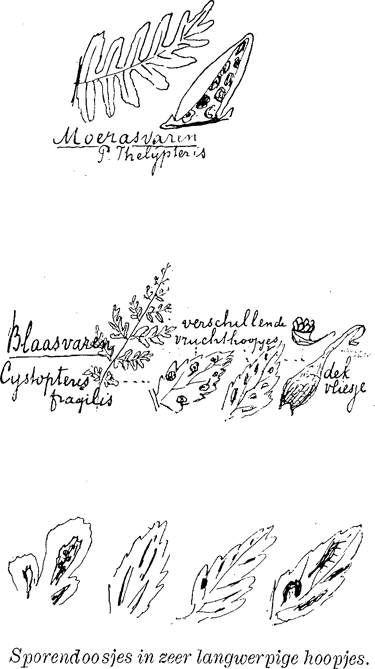 Moerasvaren
P. Thelypteris
Blaasvaren
Cystopteris
fragilis
verschillende
vruchthoopjes
dek
vliesje
Sporendoosjes in zeer langwerpige hoopjes.